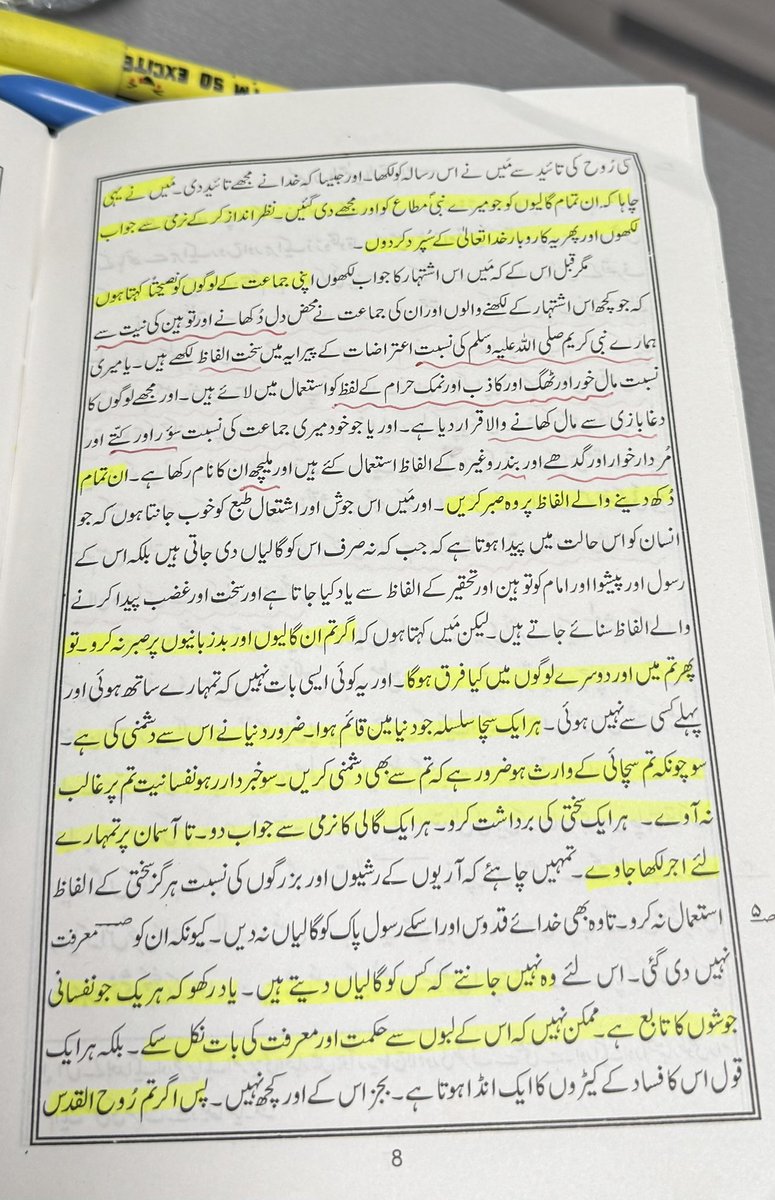 I'M SO EXCITE
سی رُوح کی تائید سے مَیں نے اس رسالہ کو لکھا۔ اور جیسا کہ خدا نے مجھے تائید دی۔ مَیں نے یہی
چاہا کہ ان تمام گالیوں کو جو میرے نبی مطاع کو اور مجھے دی گئیں۔ نظر انداز کر کے نرمی سے جواب
لکھوں اور پھر یہ کاروبار خدا تعالیٰ کے سُپرد کردوں۔
مگر قبل اس کے کہ مَیں اس اشتہار کا جواب لکھوں اپنی جماعت کے لوگوں کو نصیحتًا کہتا ہوں
کہ جو کچھ اس اشتہار کے لکھنے والوں اور ان کی جماعت نے محض دل دُکھانے اور توہین کی نیت سے
ہمارے نبی کریم صلی اللہ علیہ وسلم کی نسبت اعتراضات کے پیرایہ میں سخت الفاظ لکھے ہیں۔ یا میری
نسبت مال خور اور ٹھگ اور کاذب اور نمک حرام کے لفظ کو استعمال میں لائے ہیں۔ اور مجھے لوگوں کا
دغابازی سے مال کھانے والا قرار دیا ہے۔ اور یا جو خود میری جماعت کی نسبت سؤر اور کتّے اور
مُردار خوار اور گدھے اور بندر وغیرہ کے الفاظ استعمال کئے ہیں اور ملیچھ ان کا نام رکھا ہے۔ ان تمام
دُکھ دینے والے الفاظ پر وہ صبر کریں۔ اور مَیں اس جوش اور اشتعال طبع کو خوب جانتا ہوں کہ جو
انسان کو اس حالت میں پیدا ہوتا ہے کہ جب کہ نہ صرف اس کو گالیاں دی جاتی ہیں بلکہ اس کے
رسول اور پیشوا اور امام کو توہین اور تحقیر کے الفاظ سے یاد کیا جاتا ہے اور سخت اور غضب پیدا کرنے
والے الفاظ سنائے جاتے ہیں۔ لیکن مَیں کہتا ہوں کہ اگر تم ان گالیوں اور بدزبانیوں پر صبر نہ کرو۔ تو
پھر تم میں اور دوسرے لوگوں میں کیا فرق ہوگا۔ اور یہ کوئی ایسی بات نہیں کہ تمہارے ساتھ ہوئی اور
پہلے کسی سے نہیں ہوئی۔ ہر ایک سچا سلسلہ جو دنیا میں قائم ہوا۔ ضرور دنیا نے اس سے دشمنی کی ہے۔
سو چونکہ تم سچائی کے وارث ہو ضرور ہے کہ تم سے بھی دشمنی کریں۔ سو خبردار رہو نفسانیت تم پر غالب
نہ آوے۔ ہر ایک سختی کی برداشت کرو۔ ہر ایک گالی کا نرمی سے جواب دو۔ تا آسمان پر تمہارے
لئے اجر لکھا جاوے۔ تمہیں چاہئے کہ آریوں کے رشیوں اور بزرگوں کی نسبت ہرگز سختی کے الفاظ
استعمال نہ کرو۔ تا وہ بھی خدائے قدوس اور اسکے رسول پاک کو گالیاں نہ دیں۔ کیونکہ ان کو معرفت
صـ۵
نہیں دی گئی۔ اس لئے وہ نہیں جانتے کہ کس کو گالیاں دیتے ہیں۔ یاد رکھو کہ ہر یک جو نفسانی
جوشوں کا تابع ہے۔ ممکن نہیں کہ اس کے لبوں سے حکمت اور معرفت کی بات نکل سکے۔ بلکہ ہر ایک
قول اس کا فساد کے کیڑوں کا ایک انڈا ہوتا ہے۔ بجز اس کے اور کچھ نہیں۔ پس اگر تم رُوح القدس
8